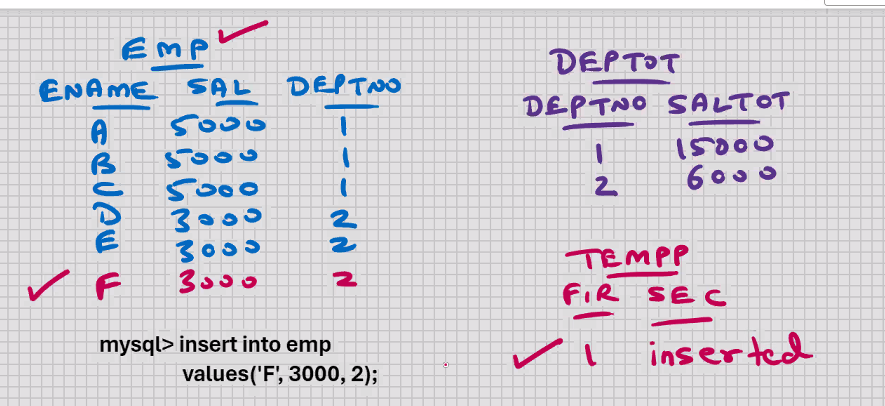 EMP
ENAME SAL DEPTNO
A 5000 1
B 5000 1
C 5000 1
D 3000 2
E 3000 2
F 3000 2
mysql> insert into emp
values('F', 3000, 2);
DEPTOT
DEPTNO SALTOT
1 15000
2 6000
TEMPP
FIR SEC
1 inserted